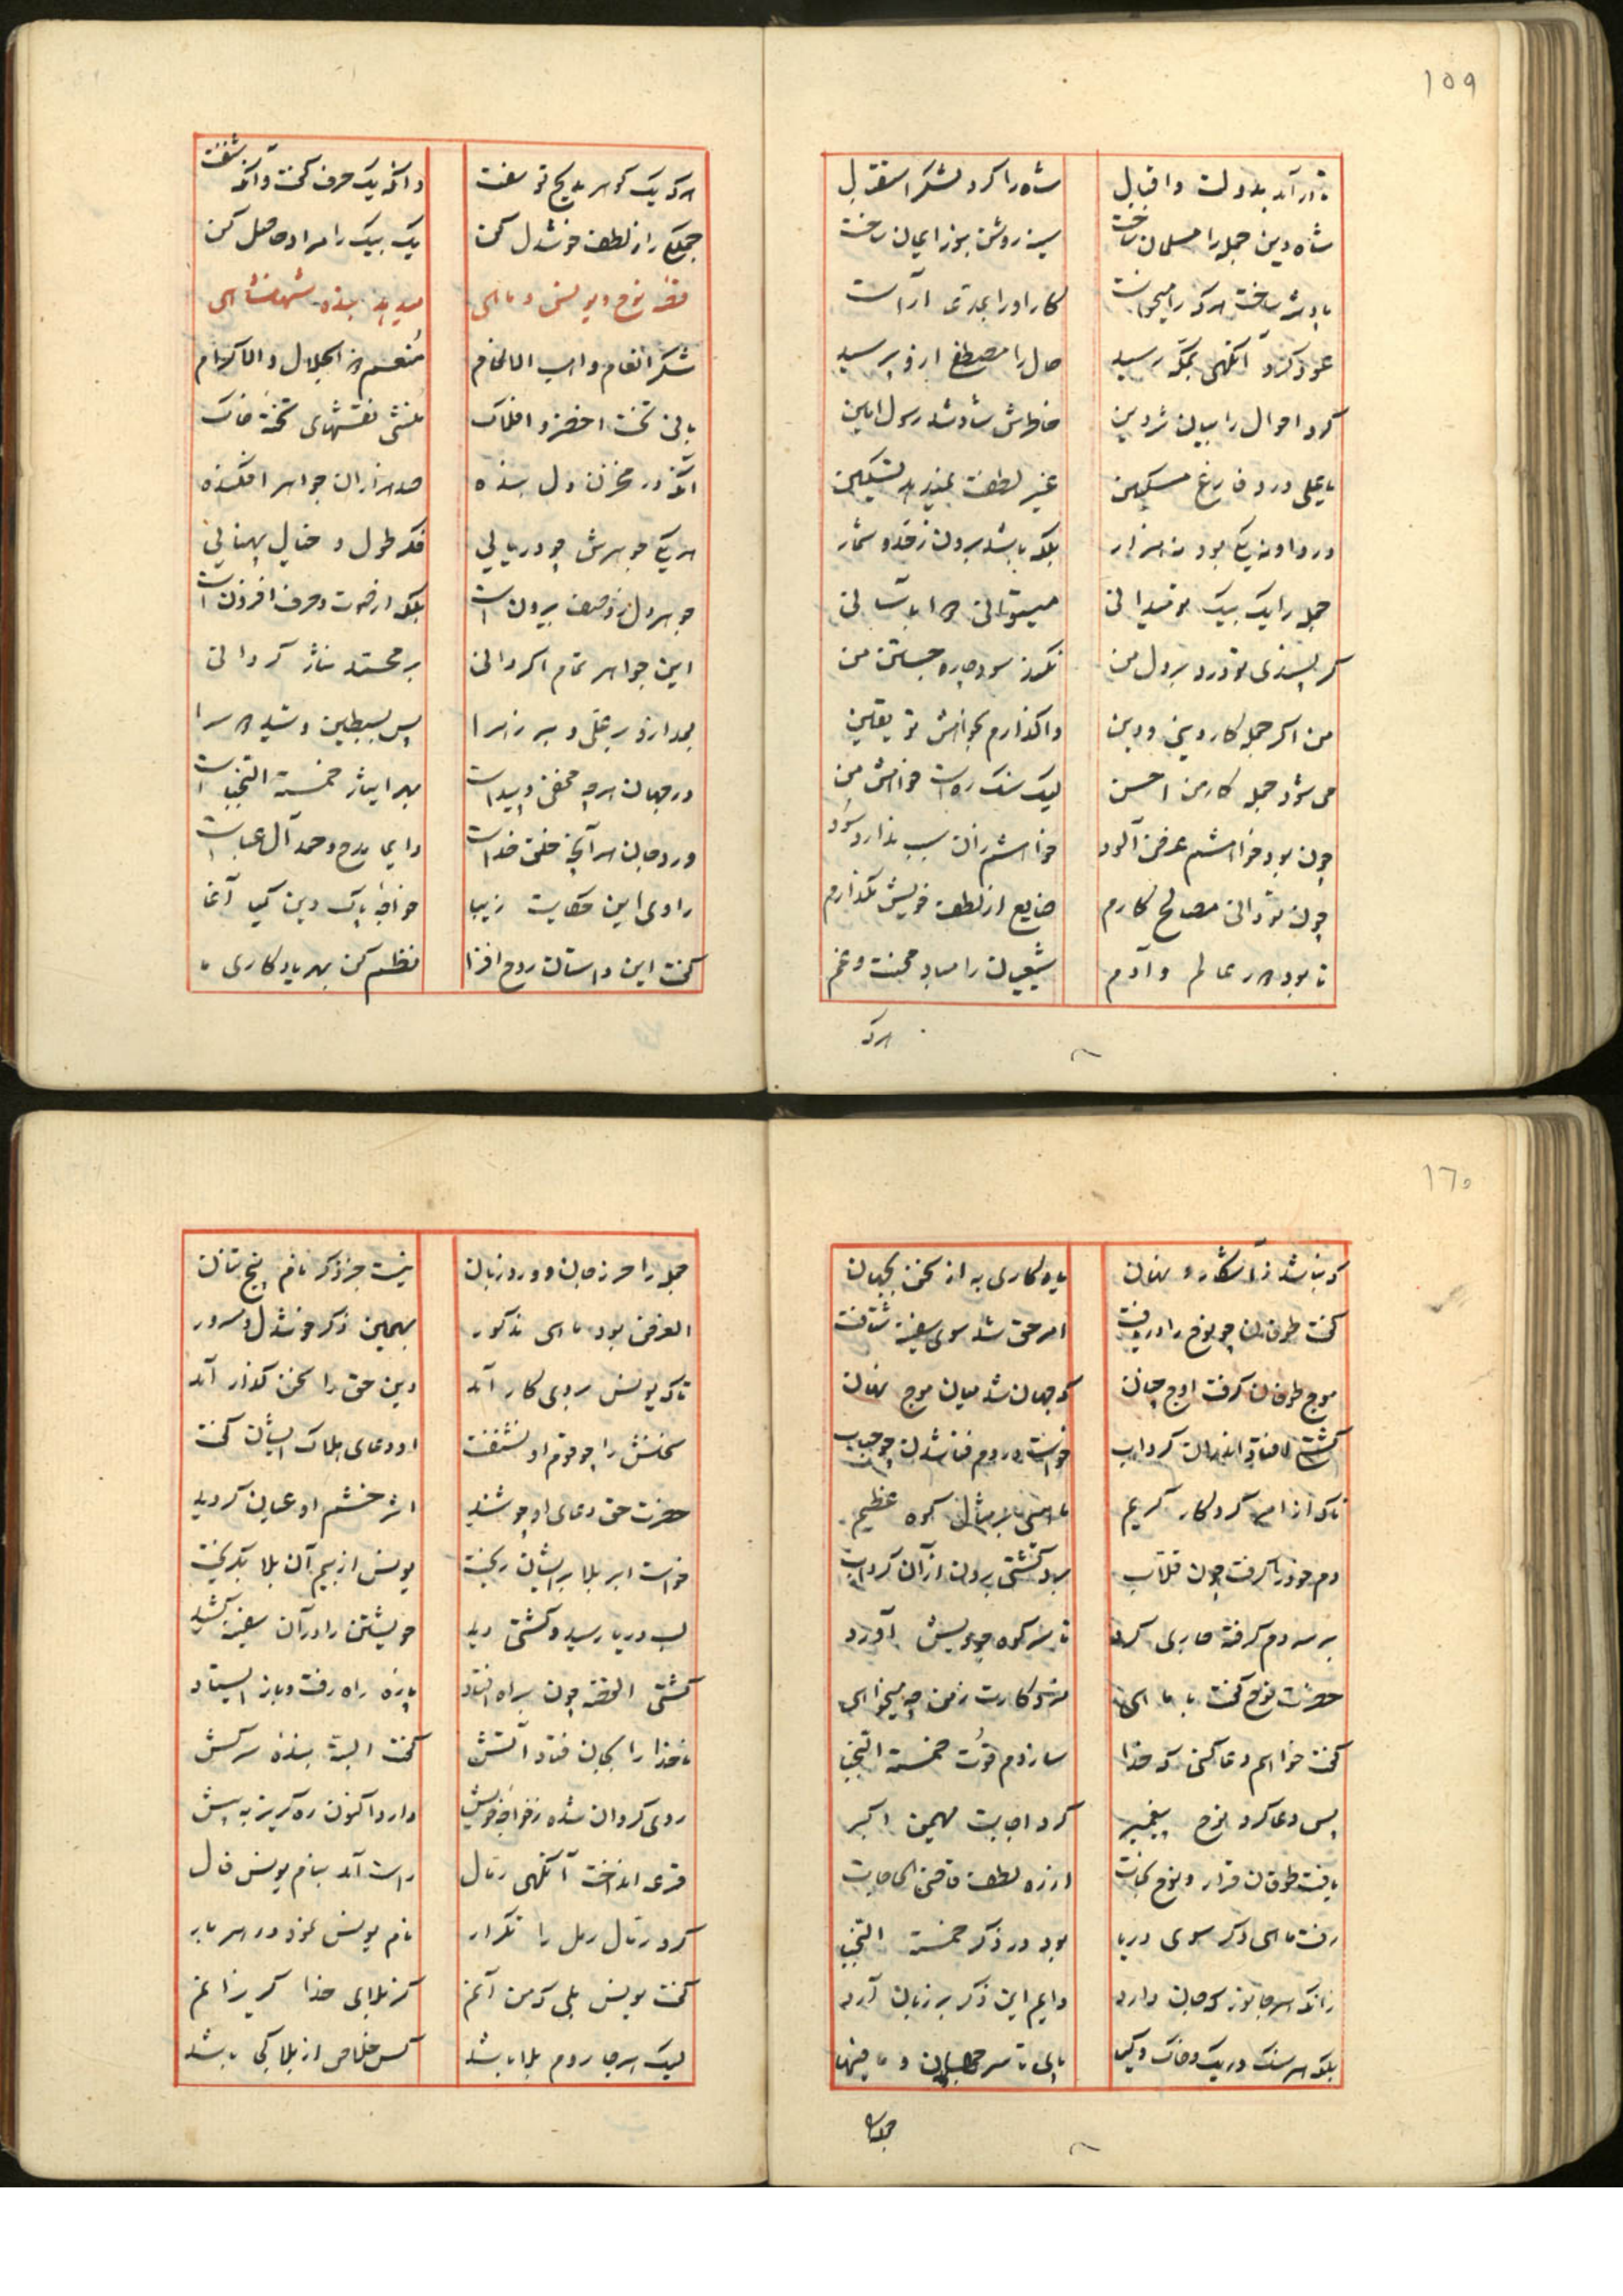 ۱۵۹
تا در آمد بدولت و اقبال شاه را کرد لشکر استقبال
شاه دین جمله را مسلمان ساخت سینه روشن بنور ایمان ساخت
پادشه ساخت هر که را میخواست کار او را آراست
عود کرد آنگهی بمکه رسید حال را مصطفی ازو پرسید
کرد احوال را بیان شه دین خاطرش شاد شد رسول امین
یا علی درد فارغ مسکین غیر لطفت نمی‌پذیرد تسکین
درد او نه یکی بود نه هزار بلکه باشد برون ز حد و شمار
جمله را یک بیک تو میدانی میتوانی دوا بآسانی
گر پسندی تو درد بر دل من نکند سود چاره جستن من
من اگر جمله کار دینی و دین واگذارم بخواهش تو یقین
می شود جمله کار من احسن لیک سنک ره است خواهش من
چون بود خواهشم غرض آلود خواهشم زان سبب ندارد سود
چون تو دانی مصالح کارم ضایع از لطف خویش نگذارم
تا بود در عالم و آدم شیعیان را مباد محنت و غم
هر که
هر که یک گوهر مدیح تو سفت وانکه یک حرف گفت وانکه شنفت
جمله را ز لطف خوشدل کن یک بیک را مراد حاصل کن
قصه نوح و یونس و ماهی میدهد بنده شهنشاهی
شکر انعام واهب الانعام منعم ذو الجلال و الاکرام
بانی تخت اخضر و افلاک منشی نقشهای تخته خاک
آنکه در مخزن دل بنده صد هزاران جواهر افکنده
هر یکی جوهرش چو دریائی فکر طول و خیال پهنائی
جوهر دل ز وصف بیرون است بلکه از صوت و حرف افزون است
این جواهر تمام اگر دانی بر محمد نثار گردانی
بعد ازو بر علی و بر زهرا پس بسبطین و سید دو سرا
در جهان هر چه مخفی و پیداست بهر ایثار خمسة النجباست
ورد جان هر آنچه خلق خداست دایما مدح و حمد آل عباست
راوی این حکایت زیبا خواجه پاک دین کیا آغا
گفت این داستان روح افزا نظم کن بهر یادگاری ما
۱۶۰
که نباشد ز آشکار و نهان یادگاری به از سخن بجهان
گفت طوفان چو نوح را دریافت امر حق شد سوی سفینه شتافت
موج طوفان گرفت اوج چنان که جهان شد میان موج نهان
کشتی افتاد اندران گرداب خواست در دم فنا شدن چو حباب
ناگه از امر کردگار کریم ماهئی بر مثال کوه عظیم
دم خود را گرفت چون قلاب برد کشتی برون از آن گرداب
بر سر دم گرفته جاری کرد تا سر کوه جودیش آورد
حضرت نوح گفت با ماهی مزد کارت ز من چه میخواهی
گفت خواهم دعا کنی که خدا سازدم قوت خمسة النجبا
پس دعا کرد نوح پیغمبر کرد اجابت مهیمن اکبر
یافت طوفان قرار و نوح نجات از ره لطف قاضی الحاجات
رفت ماهی دگر سوی دریا بود در ذکر خمسة النجبا
زانکه هر جانور که جان دارد دایم این ذکر بر زبان آرد
بلکه هر سنک و ریک و خاک و گیا پای تا سر جهان و ما فیها
جمله را
جمله را حرز جان و ورد زبان نیست جز ذکر نام پنج تنان
الغرض بود ماهی مذکور بهمین ذکر خوشدل و مسرور
تا که یونس بروی کار آمد دین حق را سخن گذار آمد
سخنش را چو قوم او نشنفت او دعای هلاک ایشان گفت
حضرت حق دعای او چو شنید اثر خشم او عیان گردید
خواست ابر بلا بر ایشان ریخت یونس از بیم آن بلا بگریخت
لب دریا رسید و کشتی دید خویشتن را در آن سفینه کشید
کشتی القصه چون براه افتاد پاره راه رفت و باز ایستاد
ناخدا را بجان فتاد آتش گفت البته بنده سرکش
روی گردان شده ز خواجه خویش دارد اکنون ره گریز به پیش
قرعه انداخت آنگهی رمال راست آمد بنام یونس فال
کرد رمال رمل را تکرار نام یونس نمود در هر بار
گفت یونس بلی که من آنم کز بلای خدا گریزانم
لیک هر جا روم بلا باشد کس خلاص از بلا کجا باشد